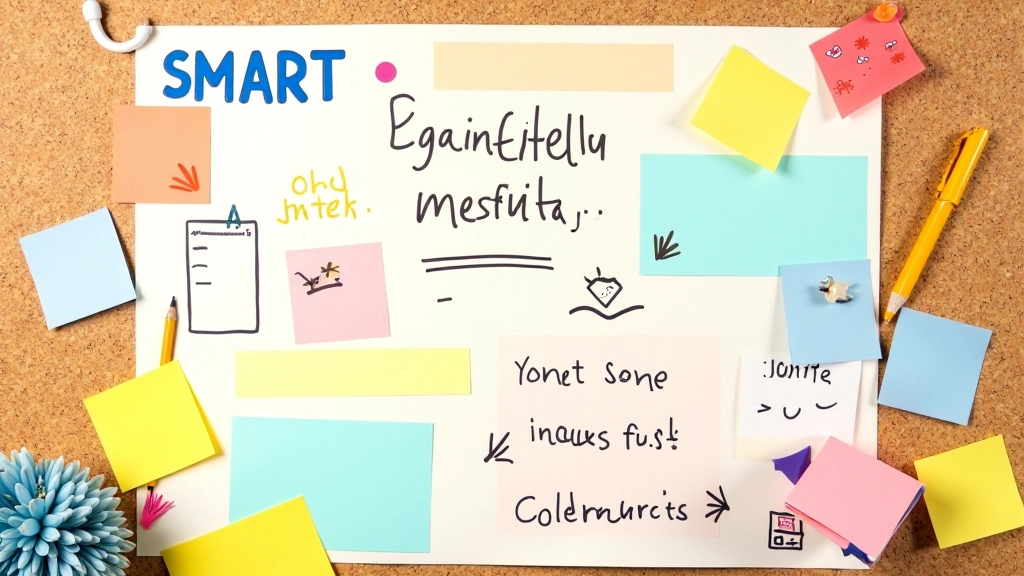 SMART
Egainfitellu
mesfuita,..
ohd
jntek.
Yonet Sone
inauus fu.st
Coldernurcits